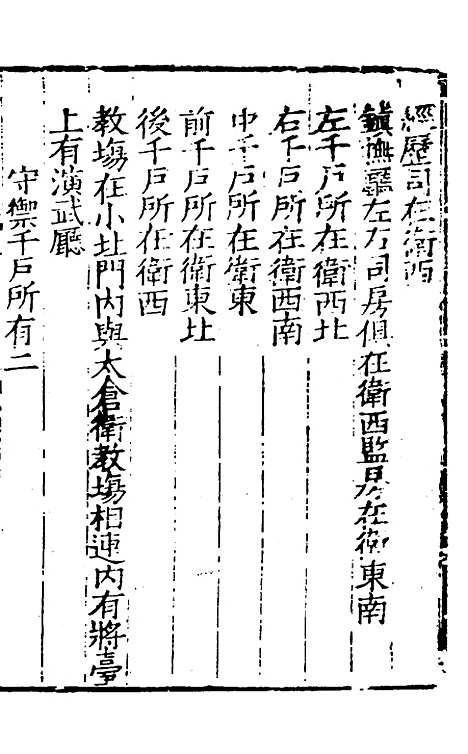 經歷司在衛西
鎮撫廳左右司房俱在衛西監房在衛東南
左千戶所在衛西北
右千戶所在衛西南
中千戶所在衛東
前千戶所在衛東北
後千戶所在衛西
教塲在小北門內與太倉衛教塲相連內有將臺
上有演武廳
守禦千戶所有二